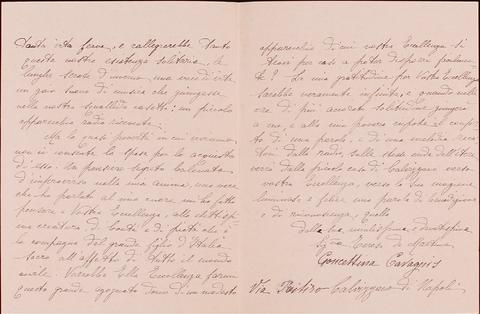 tanta ista ferve, e rallegrerebbe tanto
questa nostra esistenza solitaria, le
lunghe serate d'inverno, una eredi
un gaio suono di musica che giungesse
nella nostra squallida casetta: un piccolo
apparecchio radio ricevente!
Ma la quasi povertà in cui viviamo
non ci consente la spesa per l'acquisto
di esso. Un pensiero segreto balenato
d'improvviso nella mia anima, una voce
che ha parlato al mio cuore mi ha fatto
pensare a Vostra Eccellenza, alla eletta
creatura di bontà e di pietà che è
la compagna del grande figlio d'Italia
sacro all'affetto di tutto il mondo
civile. Vorrebbe Ella Eccellenza farmi
questo grande agognato dono di un modesto
apparecchio di cui Vostra Eccellenza si
trovi per caso a poter disporre
? La mia gratitudine per Vostra Eccellenza
sarebbe veramente infinita, e quando nelle
ore di più accorata solitudine giungerà
a me, e alla mia povera nipote il confor
to di una parola, e di una melodia
dalla radio, sulle stesse onde dell'etere
verrà dalla piccola casa di Calvizzano verso
Vostra Eccellenza, verso la Sua magione
luminosa e felice una parola di benedizione
e di riconoscenza, quella
della sua umilissima e devotissima
Teresa de Martino
Concettina Cavagnis
Via Partitoio Calvizzano di Napoli